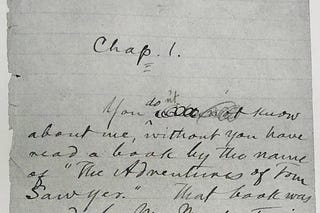 Chap. 1.
You don't know
about me, without you have
read a book by the name
of "The Adventures of Tom
Sawyer." That book was